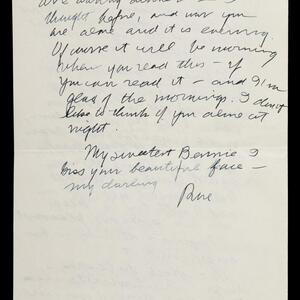 thought before, and now you
are alone and it is evening.
Of course it will be morning
when you read this - if
you can read it - and I'm
glad of the mornings. I don't
like to think of you alone at
night.
My sweetest Bennie I
kiss your beautiful face -
my darling